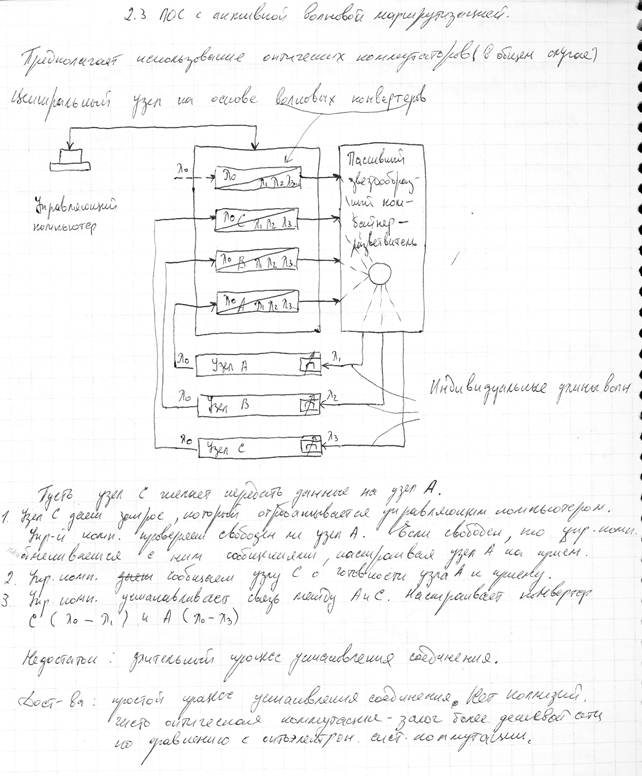 2.3 ПОС с активной волновой маршрутизацией.
Предполагает использование оптических коммутаторов (в общем случае)
Центральный узел на основе волновых конвертеров
Управляющий
компьютер
λ0
λ0
λ1 λ2 λ3
λ0 C λ1 λ2 λ3
λ0 B λ1 λ2 λ3
λ0 A λ1 λ2 λ3
Пассивный
звездообраз-
ный ком-
байнер-
разветвитель
λ0 Узел A λ1
λ0 Узел B λ2
λ0 Узел C λ3
Индивидуальные длины волн
Пусть узел C желает передать данные на узел A.
1. Узел C дает запрос, который отрабатывается управляющим компьютером.
Упр-й комп. проверяет свободен ли узел A. Если свободен, то упр. комп.
обменивается с ним сообщениями, настраивая узел A на прием.
2. Упр. комп. сообщает узлу C о готовности узла A к приему.
3. Упр комп. устанавливает связь между A и C. Настраивает конвертер
C (λ0 – λ1) и A (λ0 - λ3)
Недостаток: длительный процесс установления соединения.
Дост-ва: простой процесс установления соединения. Нет коллизий.
чисто оптическая коммутация - залог более дешевой сети
по сравнению с оптоэлектрон. сист. коммутации.